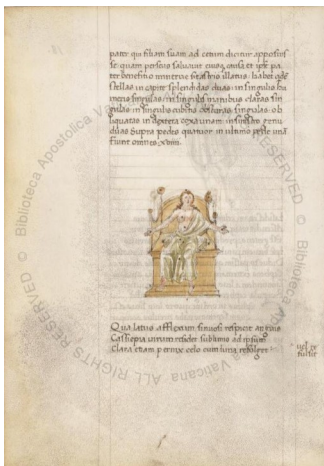 pater qui filiam suam ad cetum dicitur apposuis
se quam perseus salvavit eiusq; causa et ipse pa
ter benefitio minerve
stellas in capite splendidas duas in singulis hu
meris singulas in singulis manibus claras sin
gulas in singulis cubitis obscuras singulas ob
liquatas in dextera coxa unam in sinistro genu
duas supra pedes quatuor in ultimo pede unã
fiunt omnes xiiii.
Qua latus afflexum sinuosi respicit anguis
Cassiopia virum residet sublimis ad ipsum
Clara etiam pernox celo cum luna refulget
vel re
fulsit
© Biblioteca Apostolica Vaticana ALL RIGHTS RESERVED